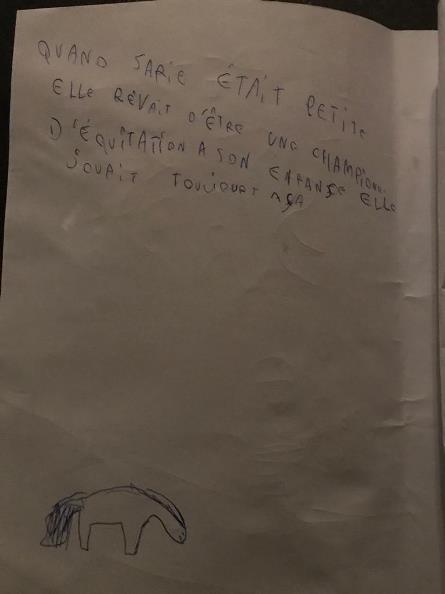 QUAND SARIE ÉTAIT PETITE
ELLE RÊVAIT D'ÊTRE UNE CHAMPIONNE
D'ÉQUITATION A SON ENFANSE ELLE
JOUAIT TOUJOURT AÇA